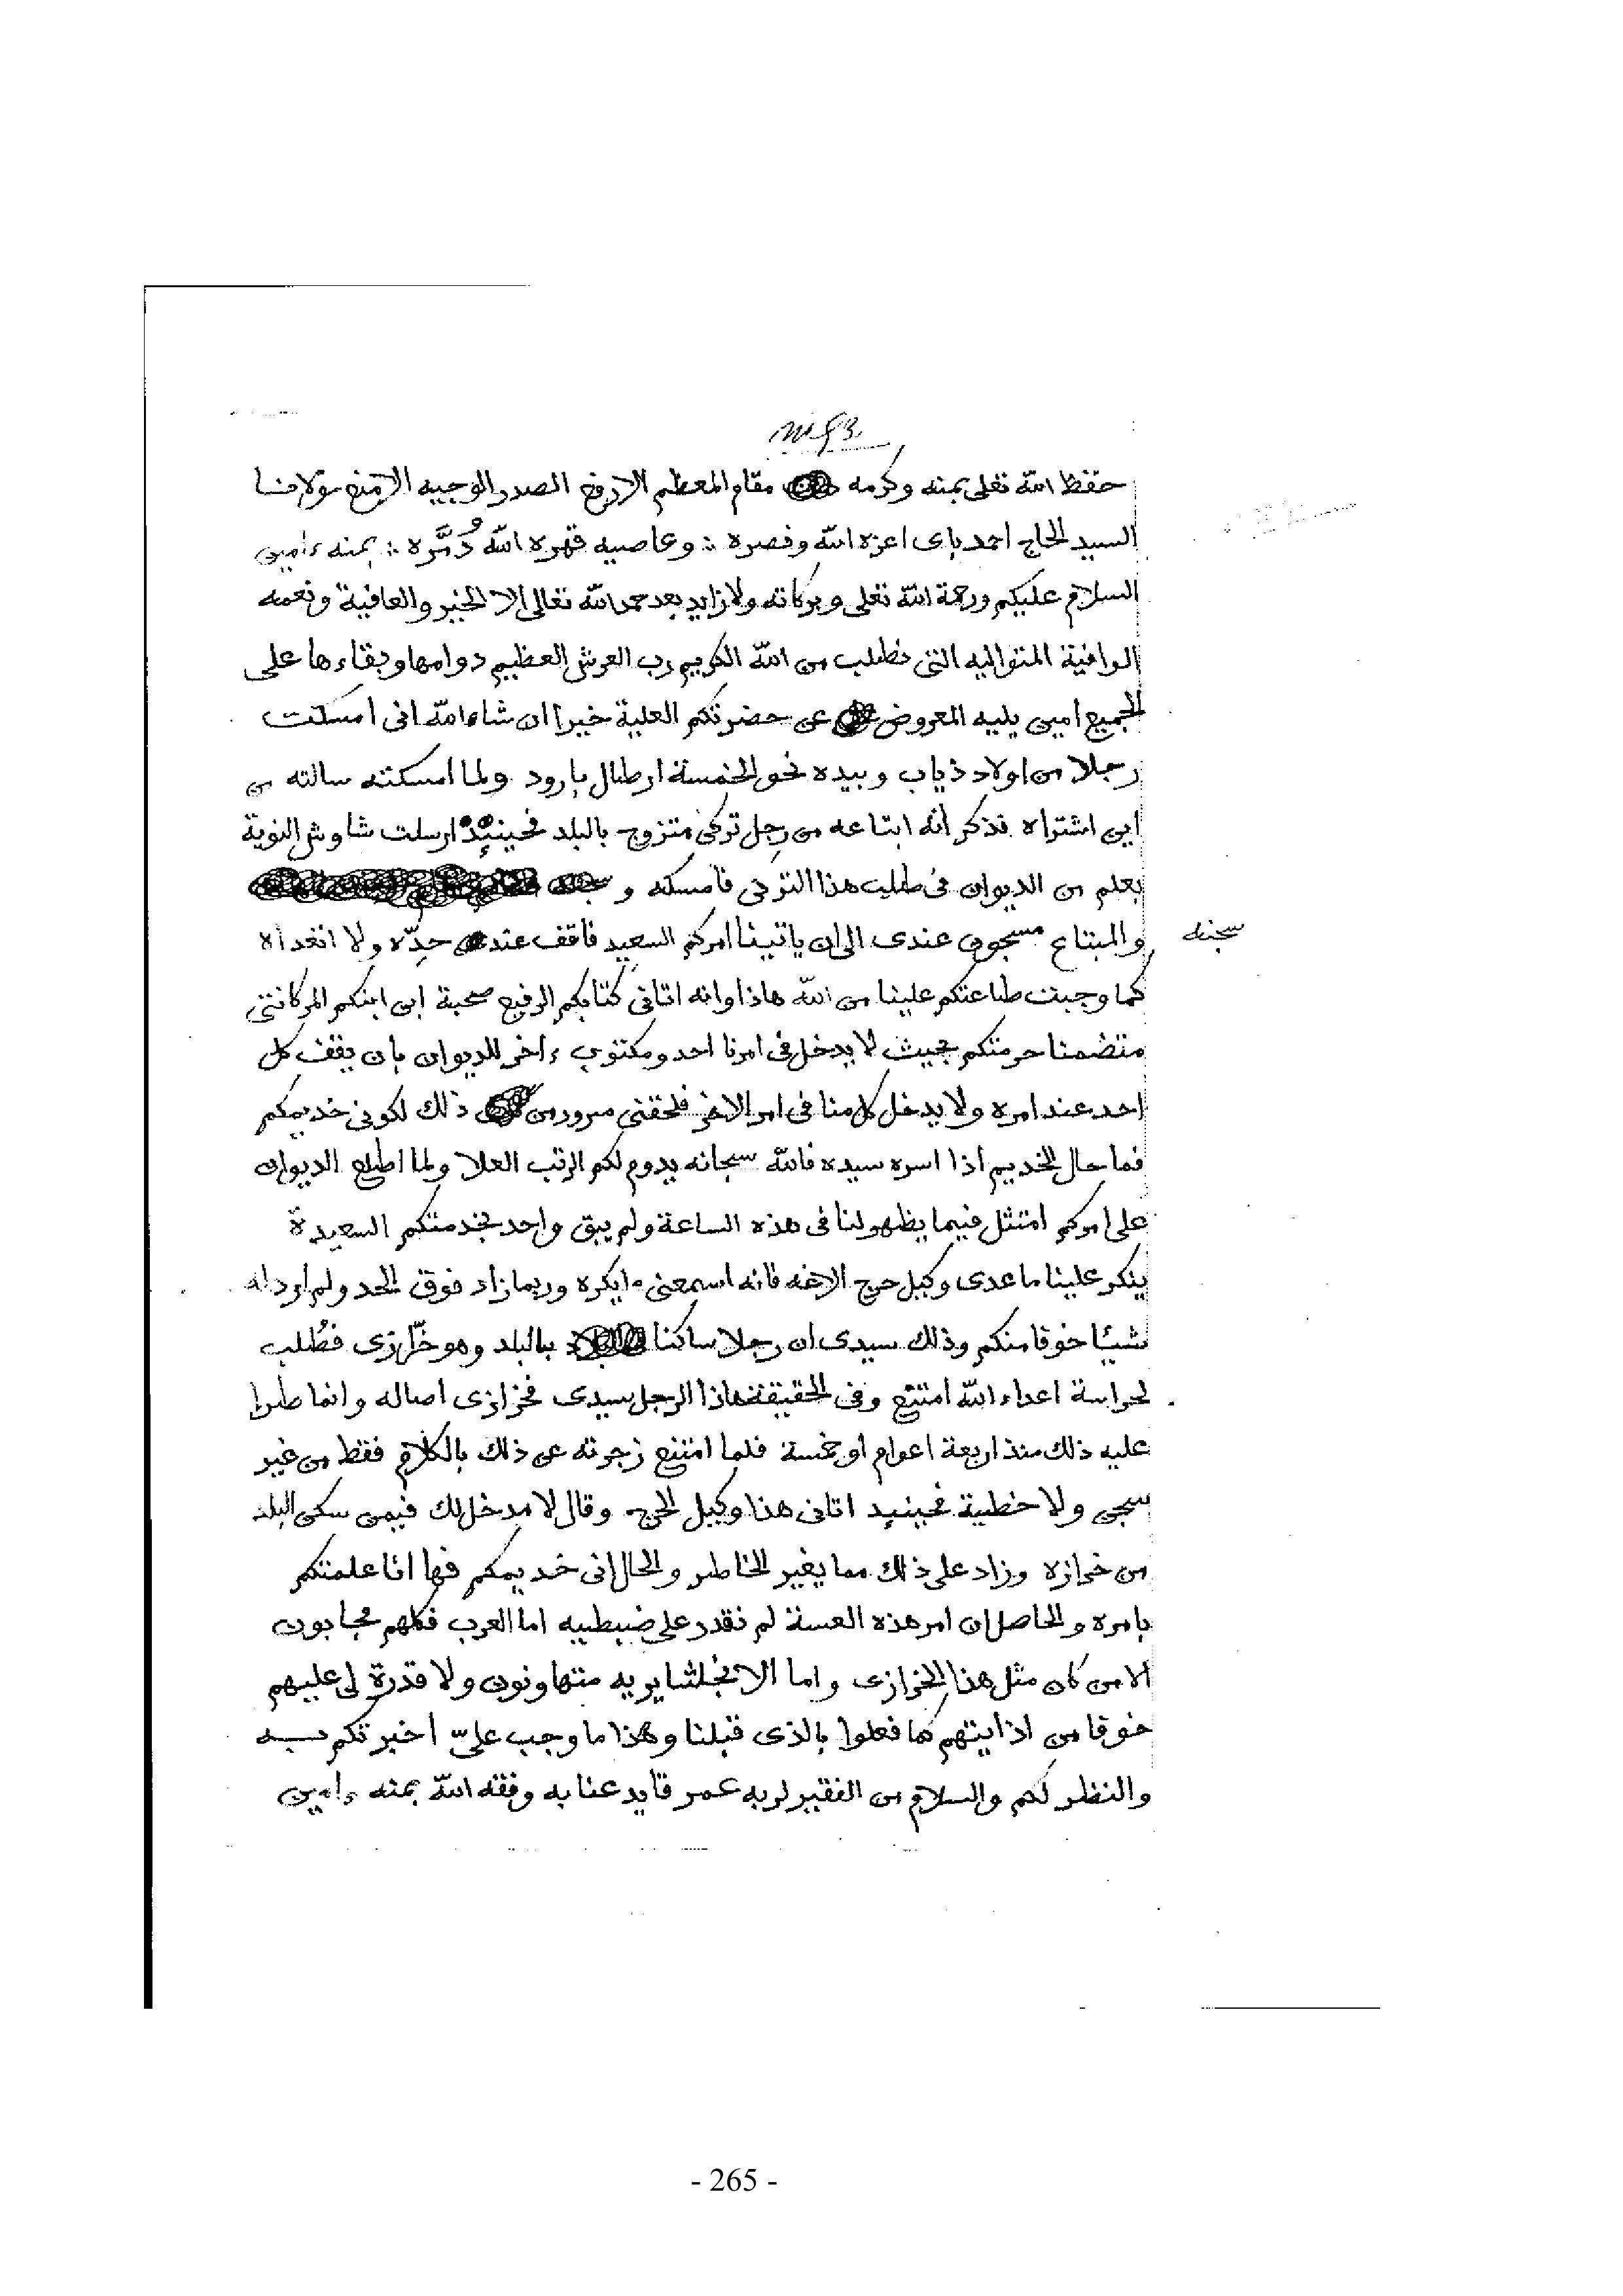 حفظ الله تعلى بمنه وكرمه مقام المعظم الارفع الصدر الوجيه الامنع مولانا
السيد الحاج احمد باى اعزه الله ونصره ∴ وعاصيه قهره الله ودُمّره ∴ بمنه ءامين
السلام عليكم ورحمة الله تعلى وبركاته ولا زايد بعد حمد الله تعالى الا الخير والعافية ونعمه
الوافية المتواليه التى نطلب من الله الكريم رب العرش العظيم دوامها وبقاءها على
الجميع امين يليه المعروض عن حضرتكم العلية خيرا ان شاء الله انى امسكت
رجلا من اولاد ذياب وبيده نحو الخمسة ارطال بارود ولما امسكته سالته من
اين اشتراه فذكر أنه ابتاعه من رجل تركى متزوج بالبلد فحينئِذ ارسلت شاوش النوبة
بعلم من الديوان فى طلب هذا التركى فامسكه و
سجنه
والمبتاع مسجون عندى الى ان ياتينا امركم السعيد فاقف عند حدّه ولا اتعداه
كما وجبت طاعتكم علينا من الله هاذا وانه اتانى كتابكم الرفيع صحبة ابن ابنكم المركانتى
متضمنا حرمتكم بحيث لا يدخل فى امرنا احد ومكتوب ءاخر للديوان بان يقف كل
احد عند امره ولا يدخل كل منا فى امر الاخر فلحقنى سرور من ذلك لكونى خديمكم
فما حال الخديم اذا اسره سيده فالله سبحانه يدوم لكم الرتب العلا ولما اطلع الديوان
على امركم امتثل فيما يظهر لنا فى هذه الساعة ولم يبق واحد بخدمتكم السعيدة
ينكر علينا ما عدى وكيل حرج الاغه فانه اسمعنى ما يكره وربما زاد فوق الحد ولم ارد له
شيئا خوفا منكم وذلك سيدى ان رجلا ساكنا بالبلد وهو خرّازى فطُلب
لحراسة اعداء الله امتنع وفى الحقيقة هاذا الرجل سيدى فخرازى اصاله وانما طرا
عليه ذلك منذ اربعة اعوام او خمسة فلما امتنع زجرته عن ذلك بالكلام فقط من غير
سجن ولا خطية فحينيد اتانى هذا وكيل الحرج وقال لا مدخل لك فيمن سكن البلد
من خرازه وزاد على ذلك مما يغير الخاطر والحال انى خديمكم فها انا علمتكم
بامره والحاصل ان امر هذه العسة لم نقدر على ضبطيه اما العرب فكلهم مجابون
الا من كان مثل هذا الخرازى واما الانجلشايريه متهاونون ولا قدرة لى عليهم
خوفا من اذايتهم كما فعلوا بالذى قبلنا وهذا ما وجب علىّ اخبرتكم بــه
والنظر لكم والسلام من الفقير لربه عمر قايد عنابه وفقه الله بمنه ءامين
- 265 -